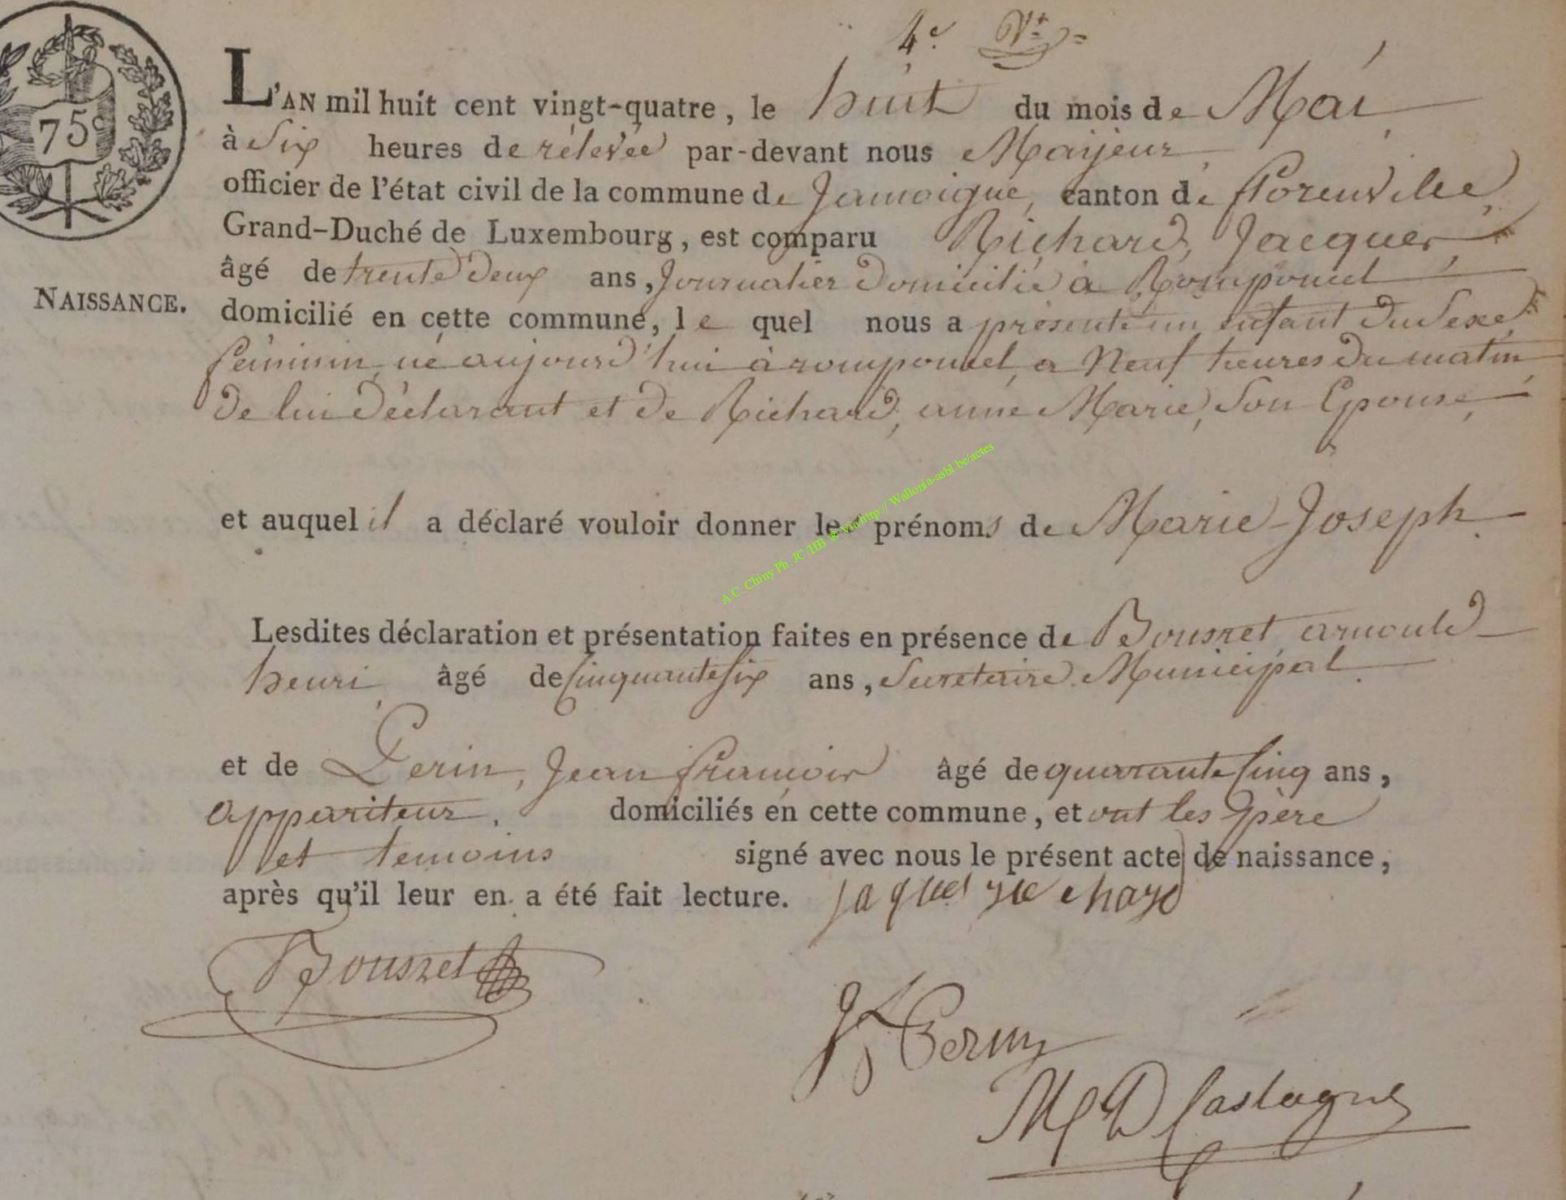 4e. Vt=
75c
L'AN mil huit cent vingt-quatre, le huit du mois de Mai
à Six heures de rélevée par-devant nous Mayeur
officier de l'état civil de la commune de Jamoigne, canton de florenville
Grand-Duché de Luxembourg, est comparu Richard, Jacques
âgé de trente deux ans, Journalier Domicilié à Romponcel
NAISSANCE.
domicilié en cette commune, le quel nous a présenté un enfant du Sexe
féminin, né aujourd'hui à romponcel, a Neuf heures du matin
de lui Déclarant et de Richard, anne Marie, Son Epouse,
et auquel il a déclaré vouloir donner les prénoms de Marie-Joseph.
A.C. Chiny Ph. JC via http // Wallonia-asbl be/actes
Lesdites déclaration et présentation faites en présence de Bousret, arnould
henri, âgé de Cinquante Six ans, Secretaire Municipal.
et de Perin, Jean françois âgé de quarante Cinq ans,
appariteur, domiciliés en cette commune, et ont les père
et temoins signé avec nous le présent acte de naissance,
après qu'il leur en a été fait lecture. jaques richard
Bousret
Jf Perin
Castagne